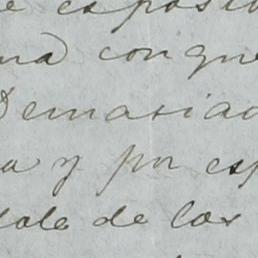 e esposi
ma con que
Demasiad
a y por esp
dole de las